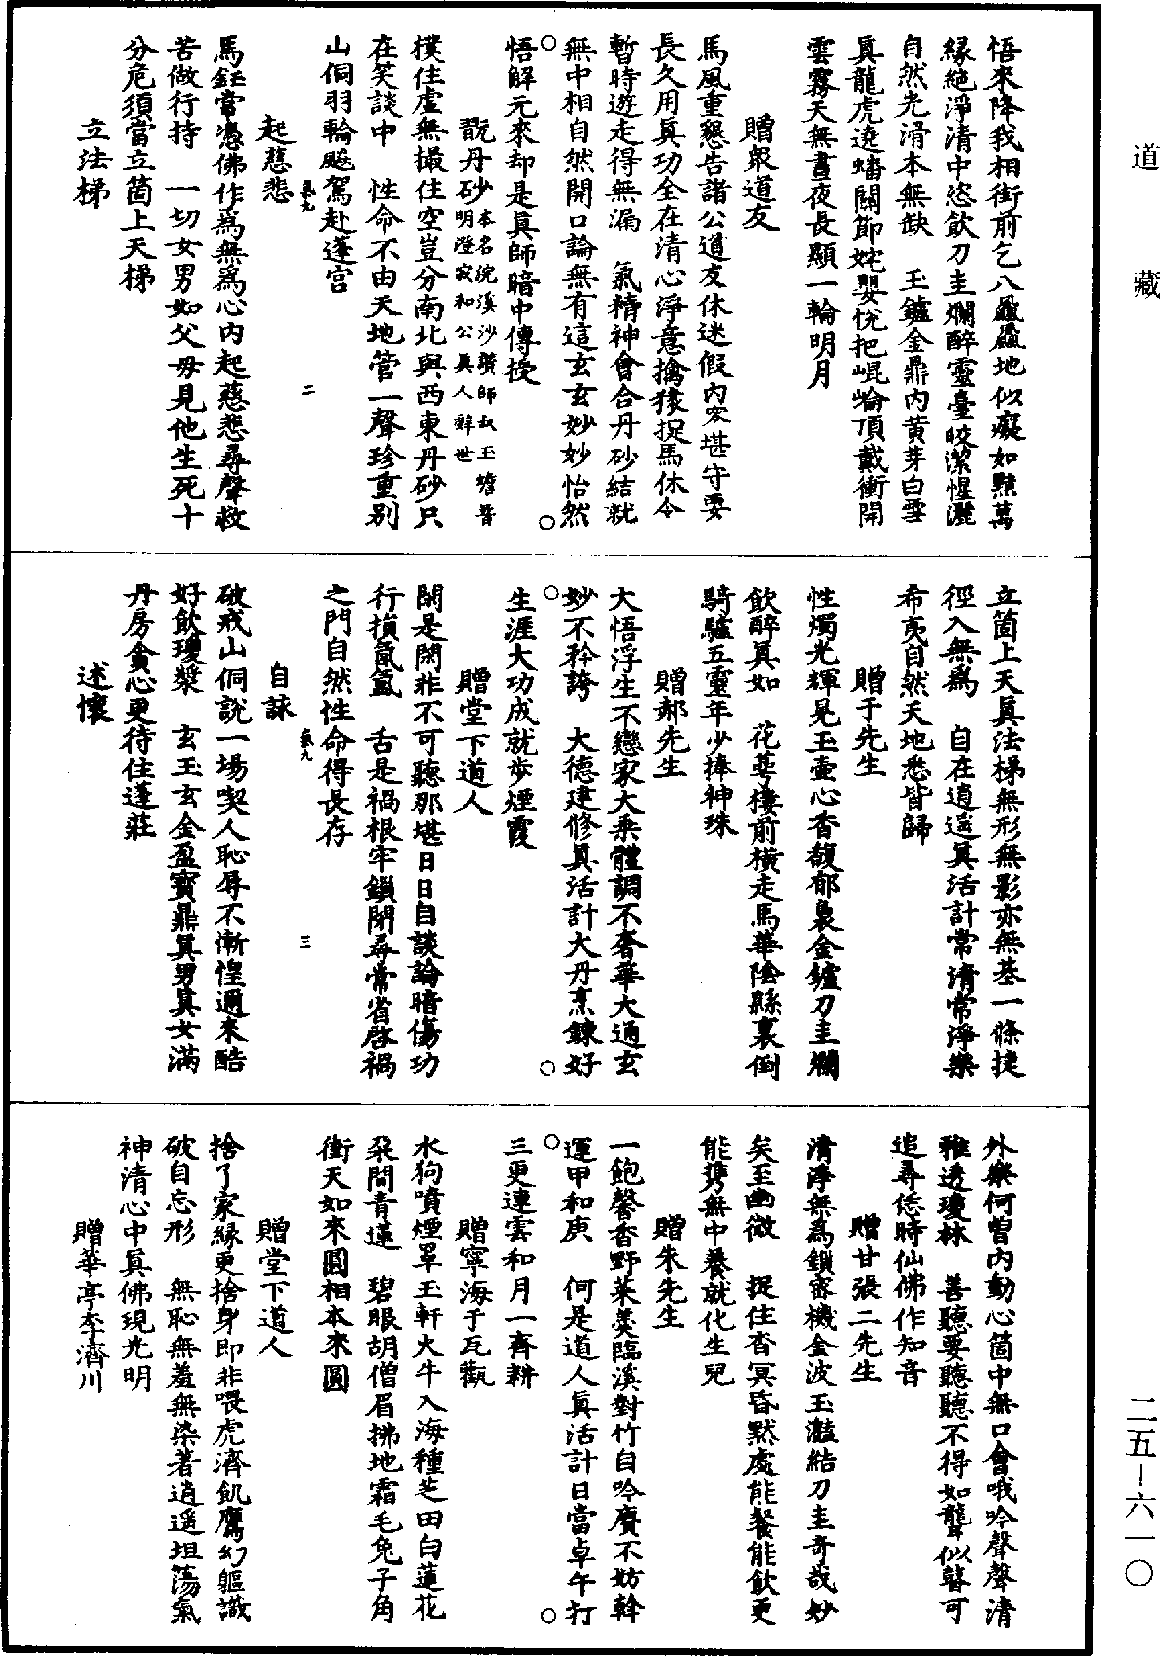 道藏
悟來降我相街前乞八䖃䖃地似癡如㸃萬
緣絕淨清中恣飲刀圭爛醉靈臺皎潔惺灑
自然光滑本無缺　玉鑪金鼎内黄芽白雪
眞龍虎遶蟠關節姹嬰悅把崐崘頂戴衝開
雲霧天無晝夜長顯一輪明月
贈衆道友
馬風重懇告諸公道友休迷假内容堪守要
長久用眞功全在清心淨意擒猿捉馬休令
暫時遊走得無漏　氣精神會合丹砂結就
無中相自然開口論無有這玄玄妙妙怡然
悟解元來却是眞師暗中傳授
翫丹砂本名浣溪沙讚師叔玉蟾普明澄寂和公眞人辭世
撲住虛無撮住空豈分南北與西東丹砂只
在笑談中　性命不由天地管一聲珍重別
山侗羽輪飈駕赴蓬宫
起慈悲
馬鈺常憑佛作爲無爲心内起慈悲尋聲救
苦做行持　一切女男如父母見他生死十
分危須當立箇上天梯
立法梯
立箇上天眞法梯無形無影亦無基一條捷
徑入無爲　自在逍遥眞活計常清常淨樂
希夷自然天地悉皆歸
贈于先生
性燭光輝晃玉壷心香馥郁裊金鑪刀圭爛
飲醉眞如　花萼樓前橫走馬華隂縣裏倒
騎驢五靈年少捧神珠
贈郝先生
大悟浮生不戀家大乗體調不奢華大通玄
妙不矜誇　大德建修眞活計大丹烹鍊好
生涯大功成就步煙霞
贈堂下道人
閑是閑非不可聽那堪日日自談論暗傷功
行損氤氲　舌是禍根牢鎖閉尋常省啓禍
之門自然性命得長存
自詠
破戒山侗說一場喫人恥辱不慚惶邇來酷
好飲瓊漿　玄玉玄金盈寳鼎眞男眞女滿
丹房貪心更待住蓬莊
述懷
外樂何曽内動心箇中無口會哦吟聲聲清
雅透瓊林　善聽要聽聽不得如聾似瞽可
追尋恁時仙佛作知音
贈甘張二先生
清淨無爲鎖密機金波玉灎結刀圭奇哉妙
矣至幽微　捉住杳冥昏黙處能餐能飲更
能携無中養就化生兒
贈朱先生
一飽馨香野菜羹臨溪對竹自吟賡不妨斡
運甲和庚　何是道人眞活計日當卓午打
三更連雲和月一齊耕
贈寧海于瓦觀
水狗噴煙罩玉軒火牛入海種芝田白蓮花
朶間青蓮　碧眼胡僧眉拂地霜毛兔子角
衝天如來圓相本來圓
贈堂下道人
捨了家緣更捨身即非喂虎濟飢鷹幻軀識
破自忘形　無恥無羞無染著逍遥坦蕩氣
神清心中眞佛現光明
贈華亭李濟川
二五－六一〇